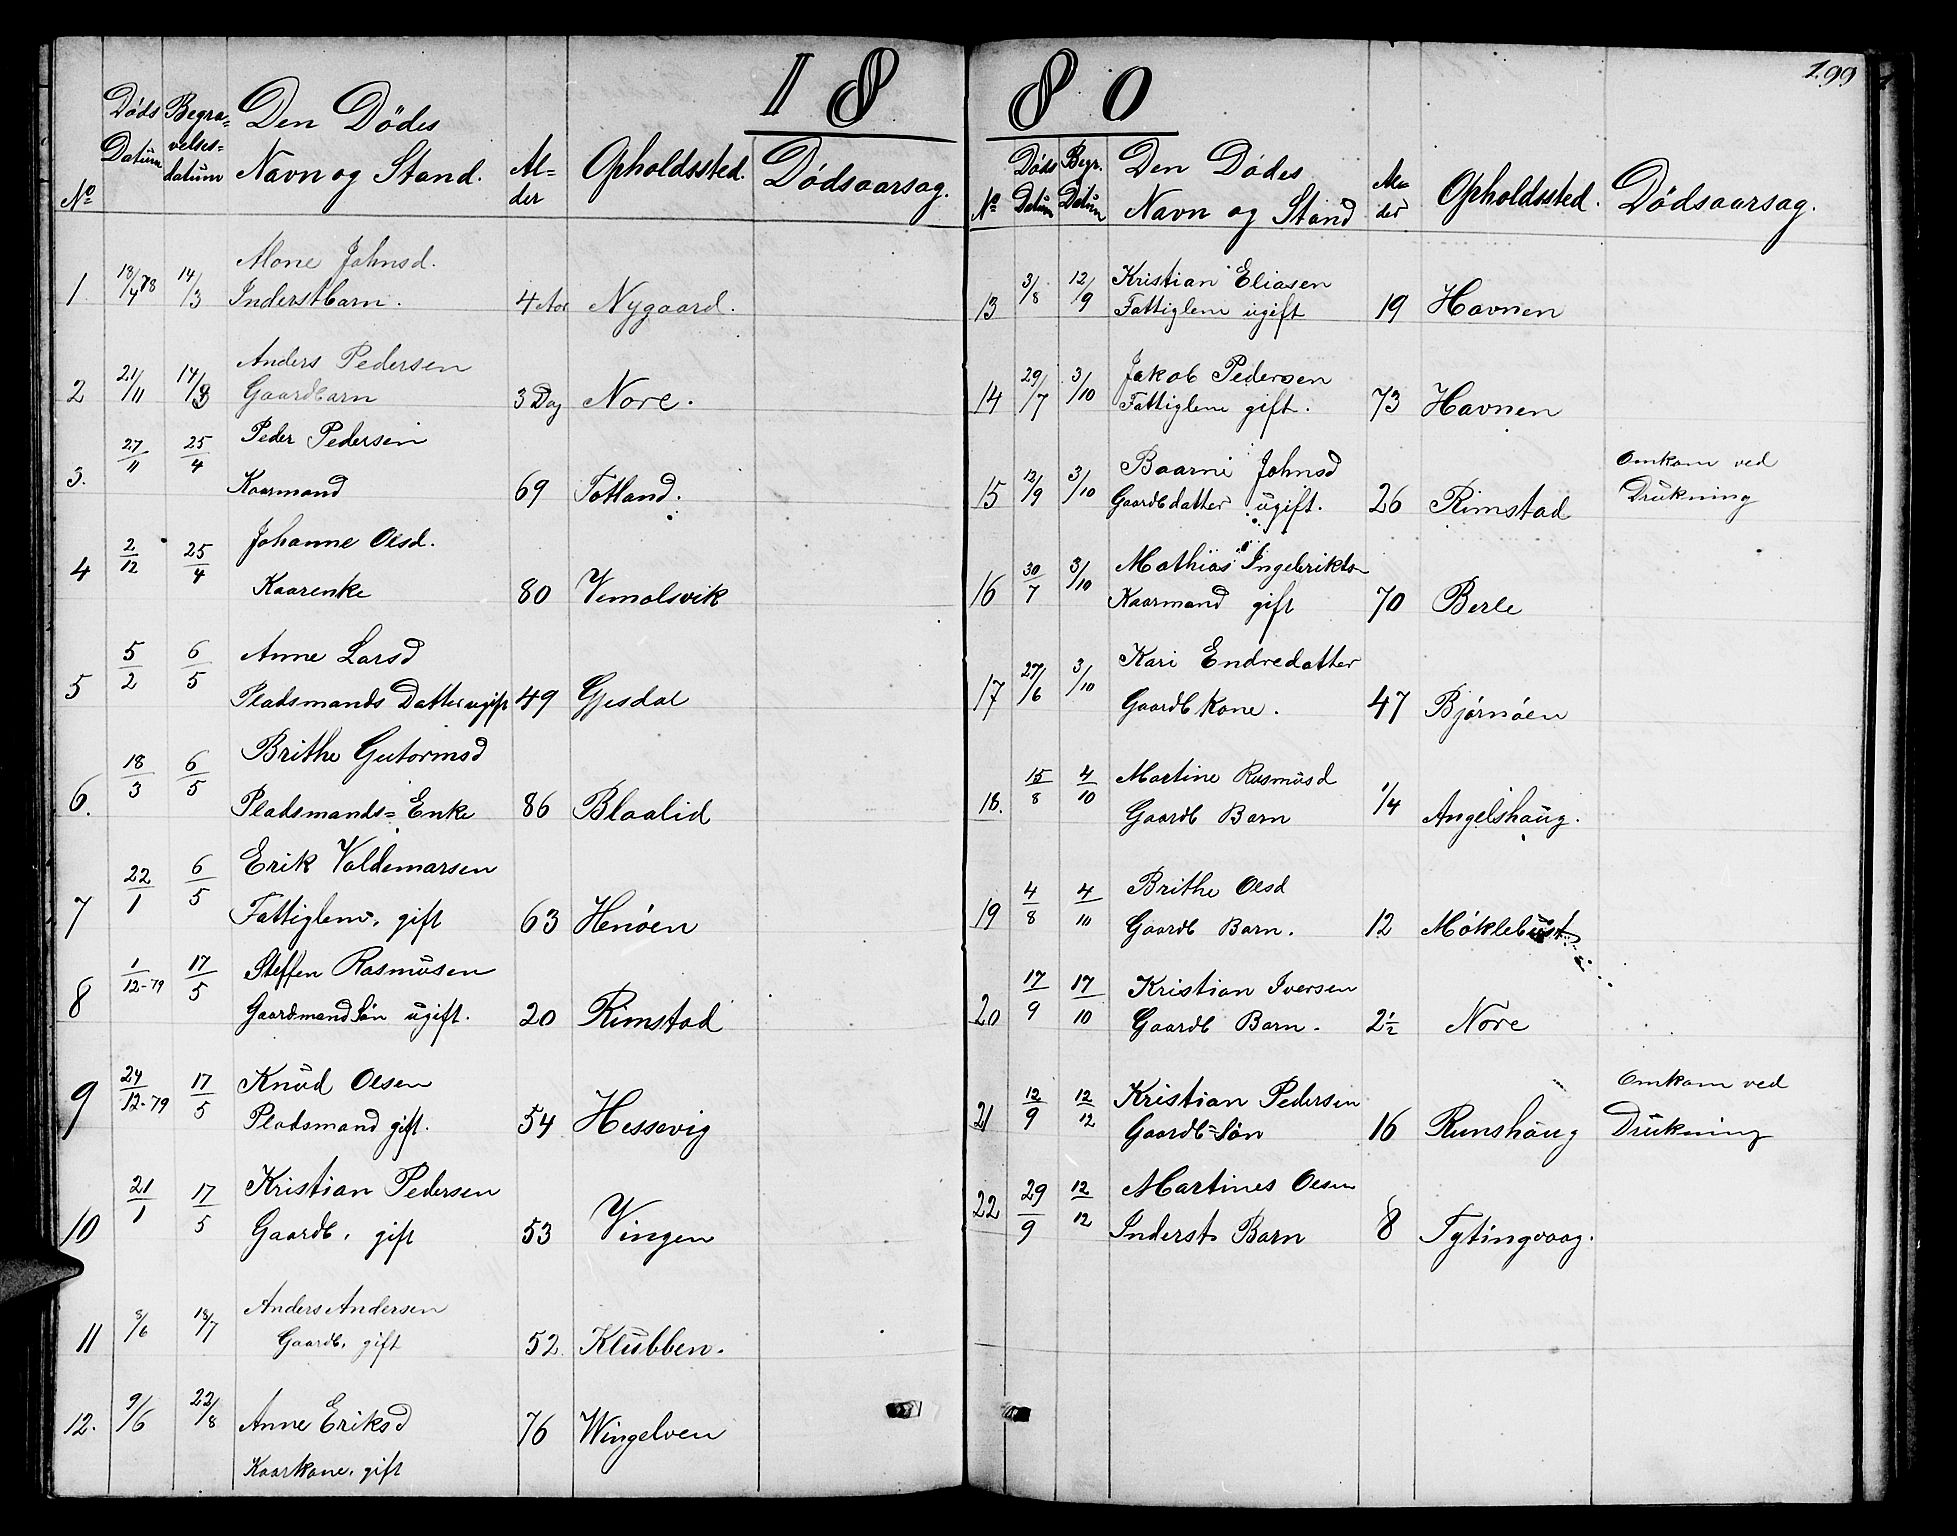 1880
199
No Døds Datum Begravelses=datum Den Dødes Navn og Stand. Al=der Opholdssted. Dødsaarsag.
1. 18/4 78 14/3 Mone Johnsd.
Inderstbarn. 4 Aar Nygaard.
2 21/11 14/3 Anders Pedersen
Gaardbarn 3 Dag Nore.
3. 27/11 25/4 Peder Pedersen
Kaarmand 69 Totland.
4 2/12 25/4 Johanne Olsd.
Kaarenke 80 Vemolsvik
5 5/2 6/5 Anne Larsd
Pladsmands Datter ugift 49 Gjesdal
6. 18/3 6/5 Brithe Gutormsd
Pladsmands= Enke 86 Blaalid
7 22/1 6/5 Erik Valdemarsen
Fattiglem, gift 63 Henøen
8 1/12-79 17/5 Steffen Rasmusen
Gaardmand Søn ugift. 20 Rimstad
9 24/12-79 17/5 Knud Olsen
Pladsmand gift. 54 Hessevig
10 21/1 17/5 Kristian Pedersen
Gaardb. gift 53 Vingen
11 3/6 18/7 Anders Andersen
Gaardb. gift 52. Klubben.
12. 9/6 22/8 Anne Eriksd
Kaarkone, gift 76 Wingelven
No Døds Datum Begr. Datum Den Dødes Navn og Stand Al=der Opholdssted. Dødsaarsag.
13 3/8 12/9 Kristian Eliasen
Fattiglem ugift 19 Havnen
14 29/7 3/10 Jakob Pedersen
Fattiglem gift. 73 Havnen
15 12/9 3/10 Baarni Johnsd Omkom ved
Gaardb datter ugift. 26 Rimstad Drukning
16 30/7 3/10 Mathias Ingebriktsn
Kaarmand gift 70 Berle
17 27/6 3/10 Kari Endredatter
Gaardb Kone. 47 Bjørnøen
18. 15/8 4/10 Martine Rasmusd
Gaardb Barn 1/4 Angelshaug.
19 4/8 4/10 Brithe Olsd
Gaardb Barn. 12 Møklebust
20 17/9 17/10 Kristian Iversen
Gaardb Barn. 2½ Nore
21 12/9 12/12 Kristian Pedersen Omkom ved
Gaardb=Søn 16 Runshaug Drukning
22 29/9 12/12 Martines Olsen
Inderst Barn 8 Tytingvaag.